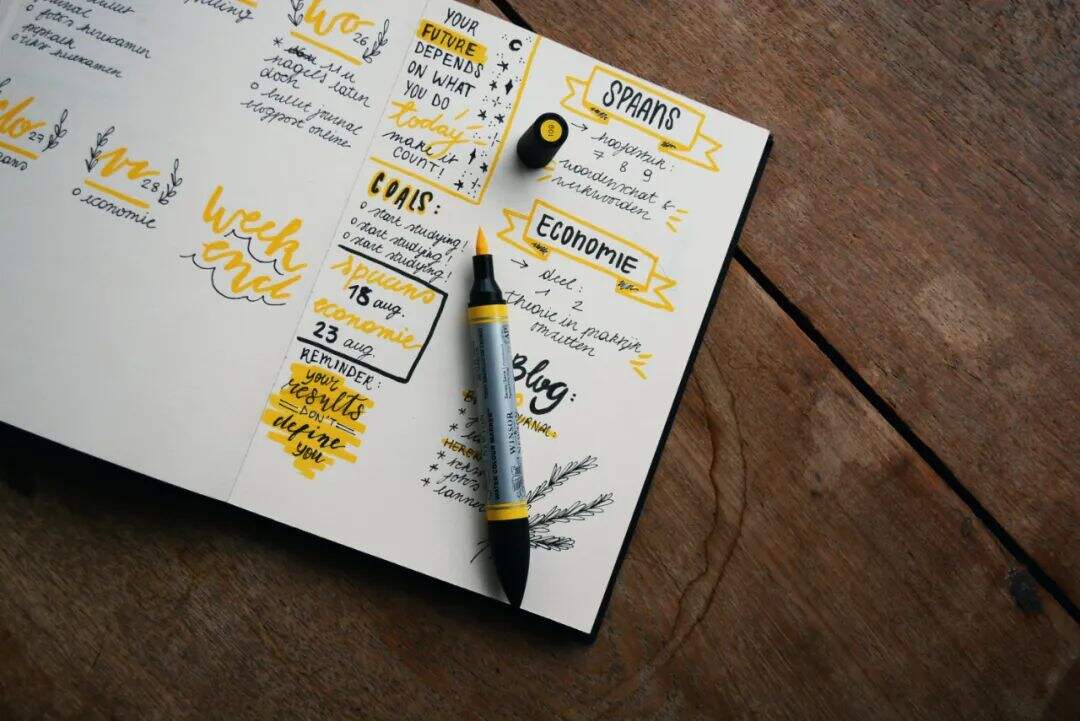 journal
foto's herexamen
peptalk
wo 26
nagels laten
doen
bullet journal
blogpost online
do 27
vr 28
economie
week
end
YOUR
FUTURE
DEPENDS
ON WHAT
YOU DO
today
make it
COUNT!
GOALS:
start studying!
start studying!
start studying!
spaans
18 aug.
economie
23 aug.
REMINDER:
your
results
DON'T
define
you
SPAANS
→ hoofdstuk:
7 8 9
woordenschat &
werkwoorden
ECONOMIE
→ deel:
1 2
theorie in praktijk
omzetten
Blog:
109
WATER COLOUR MARKER
WINSOR